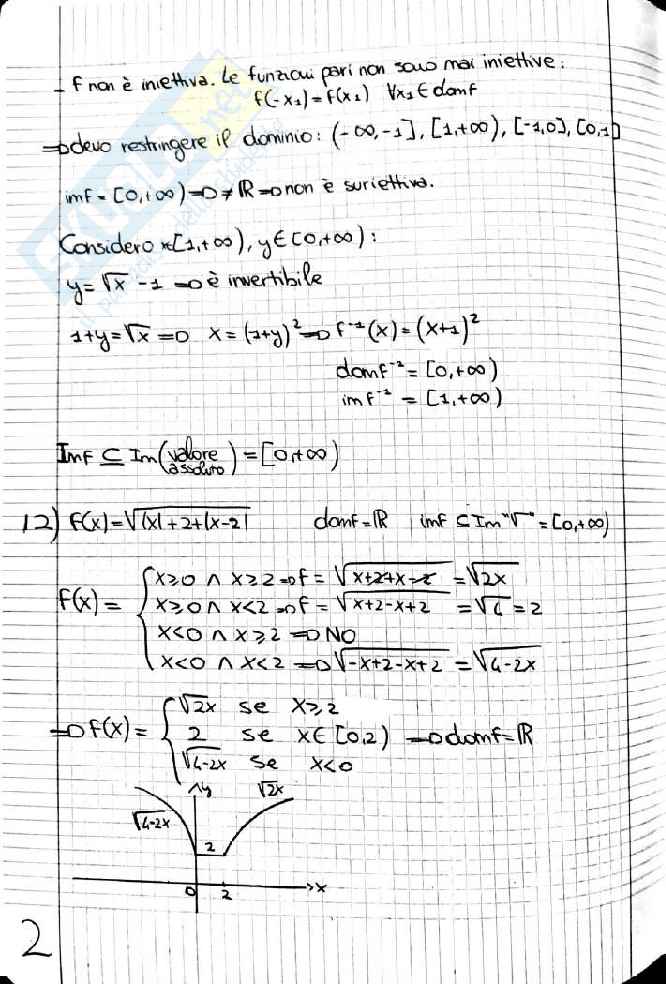 - f non è iniettiva. Le funzioni pari non sono mai iniettive:
f(-x₁)=f(x₁) ∀x₁∈domf
⇒devo restringere il dominio: (-∞,-1], [1,+∞), [-1,0], [0,1]
imf = [0,+∞) ⇒ ≠ ℝ ⇒ non è suriettiva.
Considero x∈[1,+∞), y∈[0,+∞):
y=√x -1 ⇒ è invertibile
1+y=√x ⇒ x=(1+y)² ⇒ f⁻¹(x)=(x+1)²
domf⁻¹=[0,+∞)
imf⁻¹=[1,+∞)
Imf ⊆ Im(valore assoluto)=[0,+∞)
12) f(x)=√|x|+2+|x-2| domf=ℝ imf ⊆ Im "√" =[0,+∞)
x≥0 ∧ x≥2 ⇒ f = √x+2+x-2 = √2x
f(x)= { x≥0 ∧ x<2 ⇒ f = √x+2-x+2 = √4 = 2
x<0 ∧ x≥2 ⇒ NO
x<0 ∧ x<2 ⇒ √-x+2-x+2 = √4-2x
√2x se x≥2
⇒ f(x)= { 2 se x∈[0,2) ⇒ domf=ℝ
√4-2x se x<0
y √2x
√4-2x
2
0 2 x
2